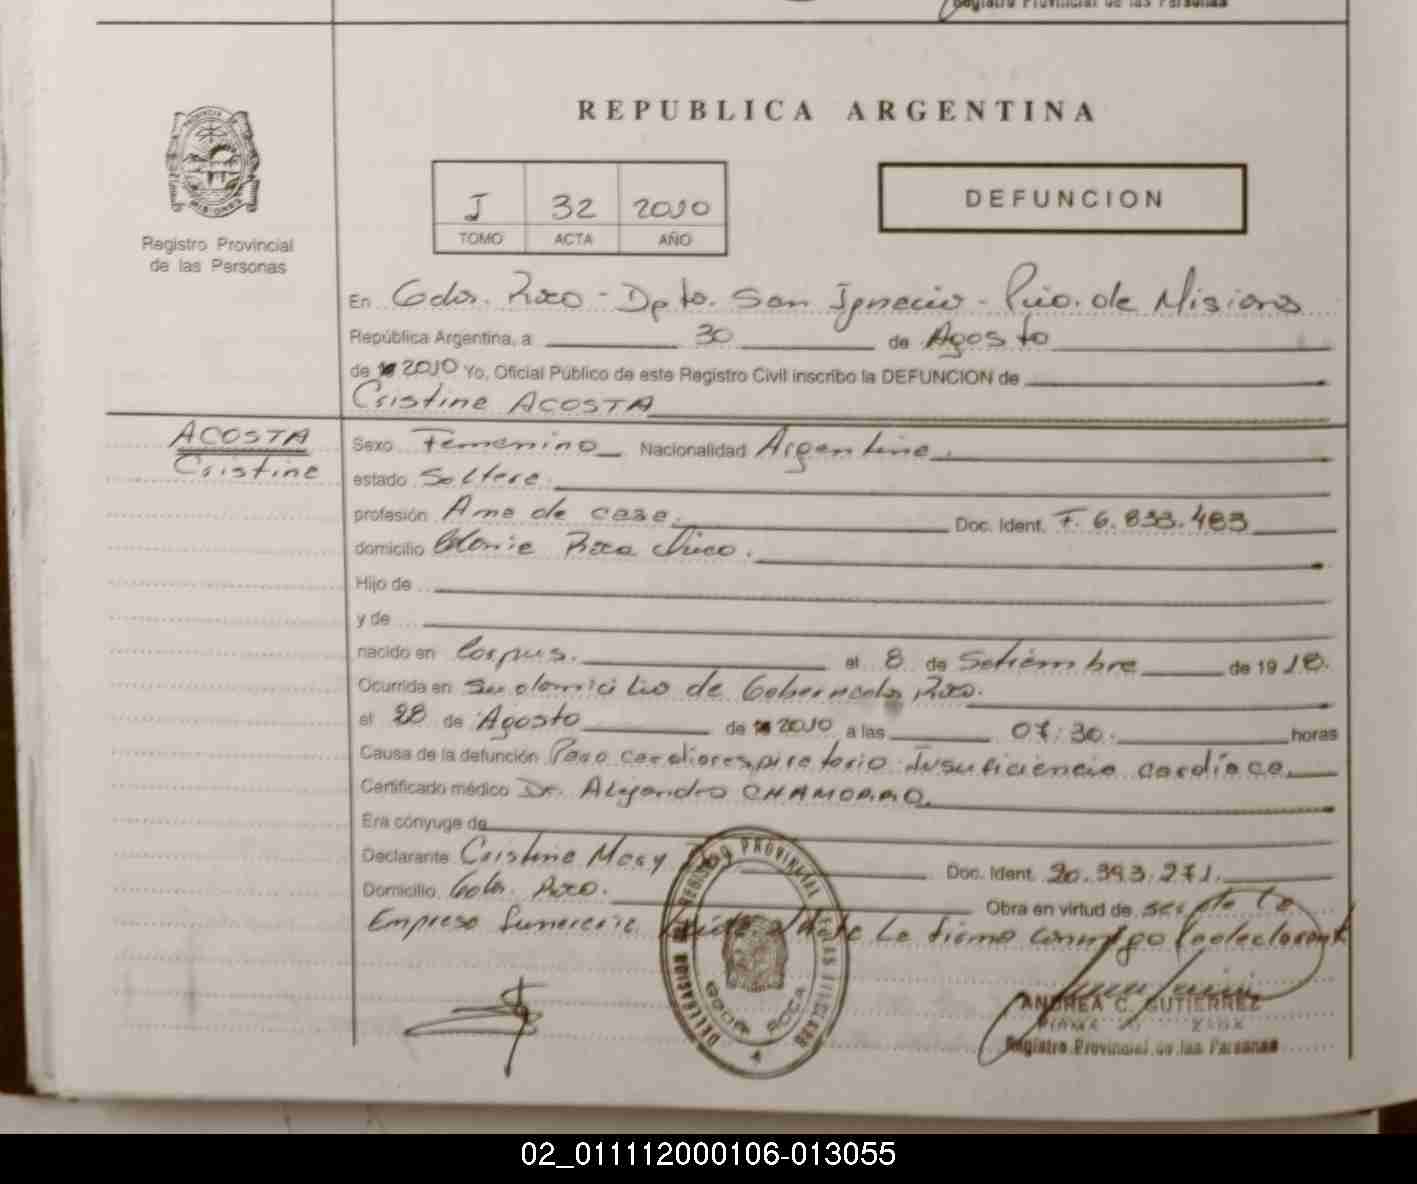 Registro Provincial de las Personas
REPUBLICA ARGENTINA
J 32 2010
TOMO ACTA AÑO
DEFUNCION
PROVINCIA DE
MISIONES
Registro Provincial
de las Personas
En Gdor. Roca - Dpto. San Ignacio - Pcio. de Misiones
República Argentina, a 30 de Agosto
de 2010 Yo, Oficial Público de este Registro Civil inscribo la DEFUNCION de
Cristina ACOSTA
ACOSTA
Cristina
Sexo Femenino Nacionalidad Argentina.
estado Soltera.
profesión Ama de casa. Doc. Ident. F. 6.833.483
domicilio Colonia Roca Chico.
Hijo de
y de
nacido en Corpus. el 8 de Setiembre de 1918.
Ocurrida en su domicilio de Gobernador Roca.
el 28 de Agosto de 2010 a las 07:30. horas
Causa de la defunción Paro cardiorespiratorio Insuficiencia cardíaca.
Certificado médico Dr. Alejandro CHAMORRO.
Era cónyuge de
Declarante Cristina Doc. Ident. 20.393.271.
Domicilio Gdor. Roca. Obra en virtud de ser de la
Empresa funeraria Leída el acta la firma conmigo la declarante
DELEGACION DE REGISTRO PROVINCIAL DE LAS PERSONAS
GDOR ROCA
ANDREA C. GUTIERREZ
Registro Provincial de las Personas
02_011112000106-013055